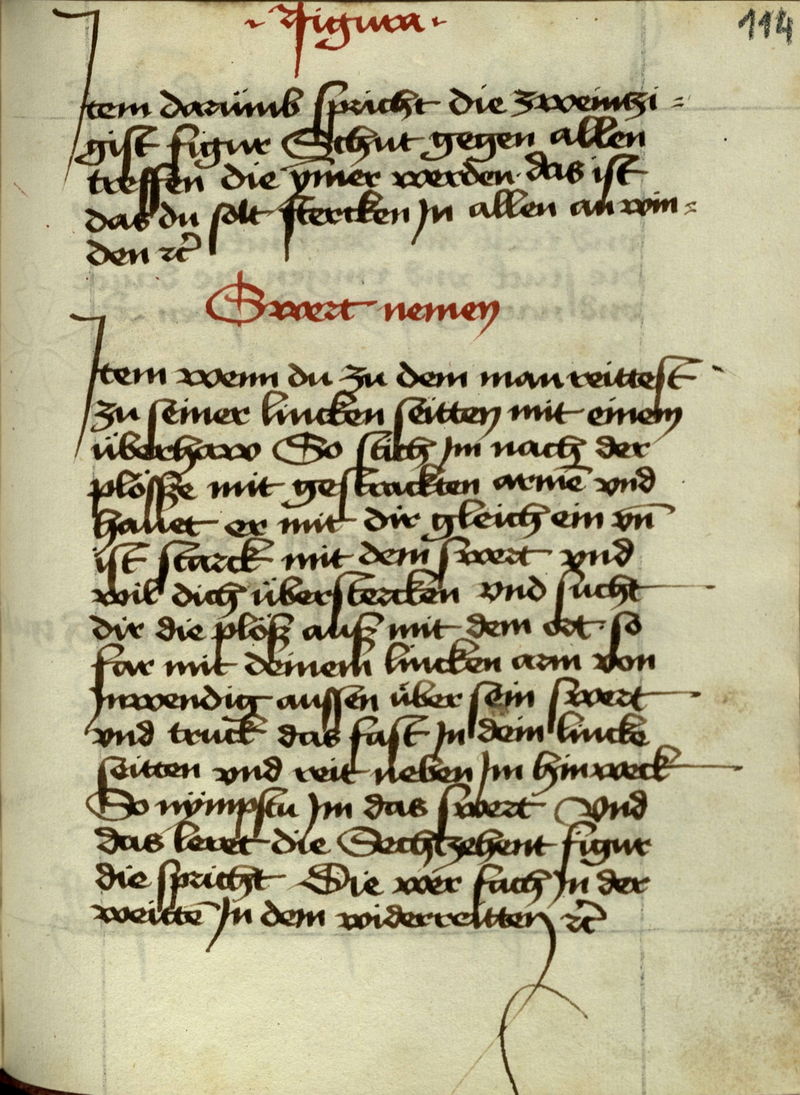 114
· Figura ·
Item darumb spricht die zweintzi=
gist figur Schut gegen allen
treffen die ym̄er werden das ist
das du solt stercken Jn allen an win=
den ⁊c̄
Swert nemen
Item wenn du zu dem man reittest
zu seiner lincken seitten mit einem
überhaw So stich Jm nach der
plösße mit gestrackten armē vnd
hauet er mit dir gleich ein vn̄
ist starck mit dem swert vnd
wil dich überstercken vnd sucht
dir die plöß auß mit dem ort · so
far mit deinem lincken arm von
Jnwendig aussen über sein swert
vnd truck das fast Jn dein lincke
seitten vnd reit neben Jm hin weck
So nÿmpstu Jm das swert Vnd
das leret die Sechtzehent figur
die spricht Die wer fach Jn der
weittē Jn dem widerreitten ⁊c̄